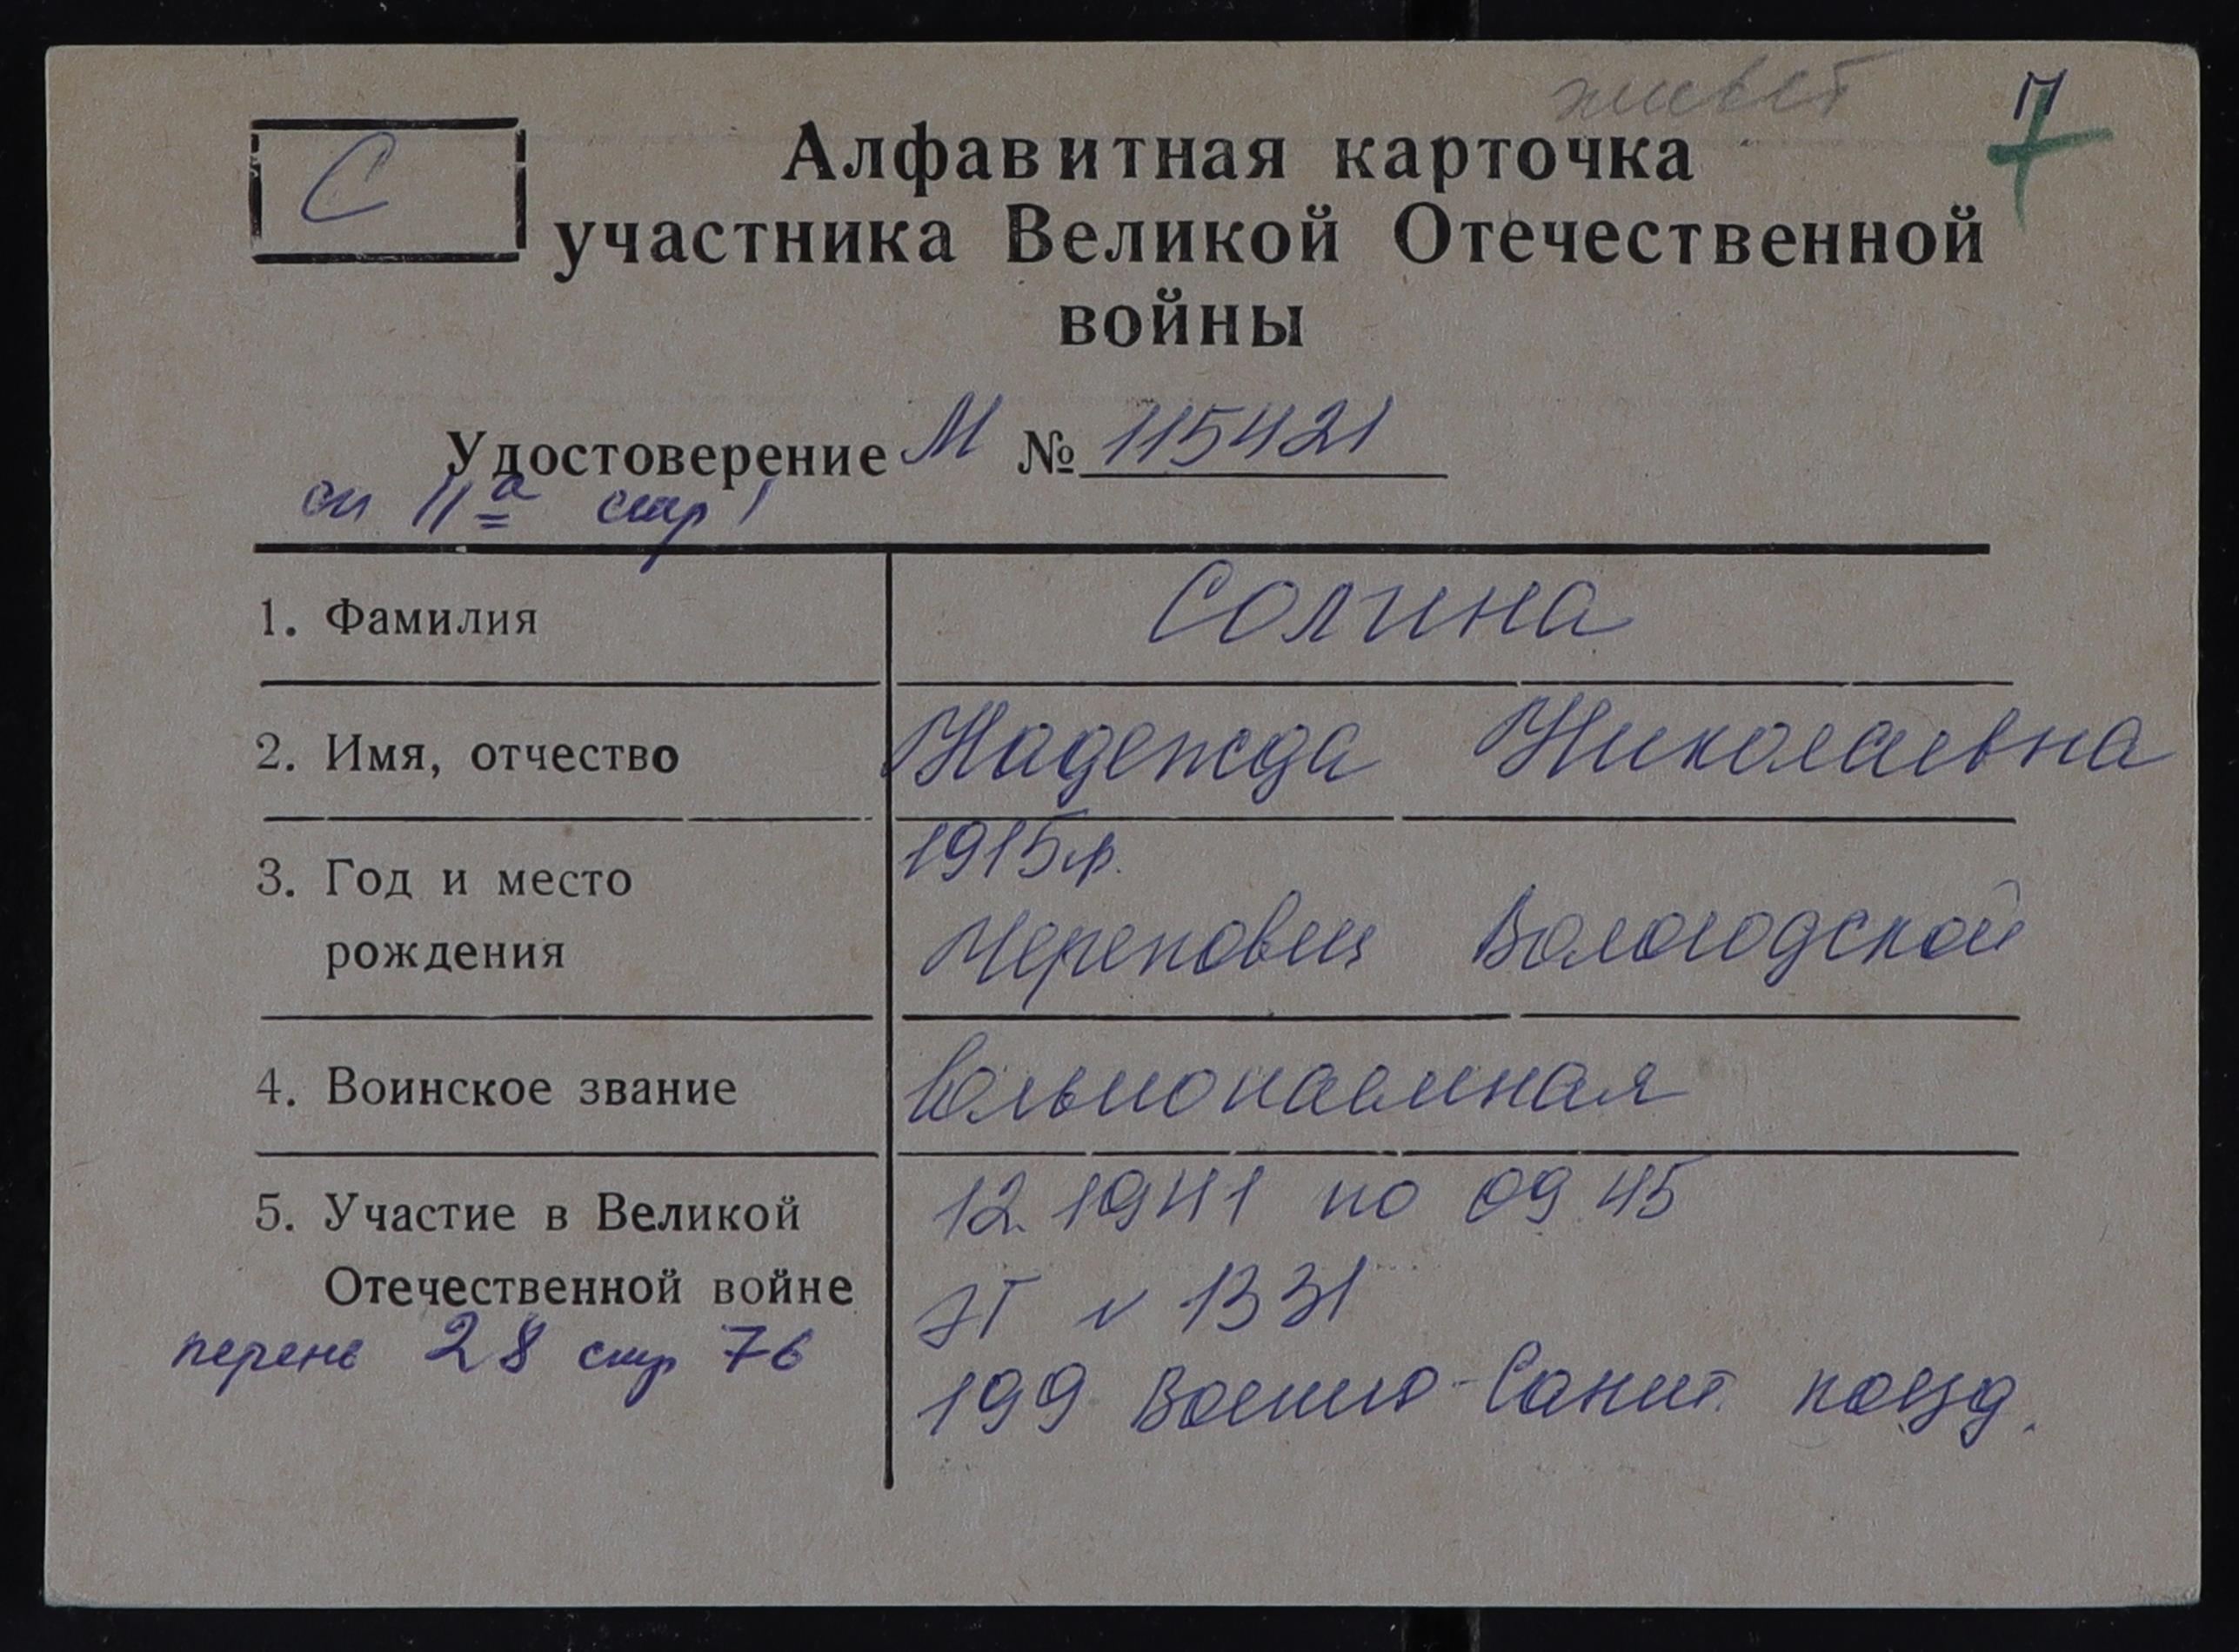 живет П
7
С
Алфавитная карточка
участника Великой Отечественной
войны
Удостоверение М № 115421
оп 11а стр 1
1. Фамилия Солина
2. Имя, отчество Надежда Николаевна
3. Год и место рождения 1915 г.
Череповец Вологодской
4. Воинское звание вольнонаемная
5. Участие в Великой Отечественной войне 12.1941 по 09.45
ЭГ № 1331
перень 28 стр 76 199 Военно-Санит. поезд.